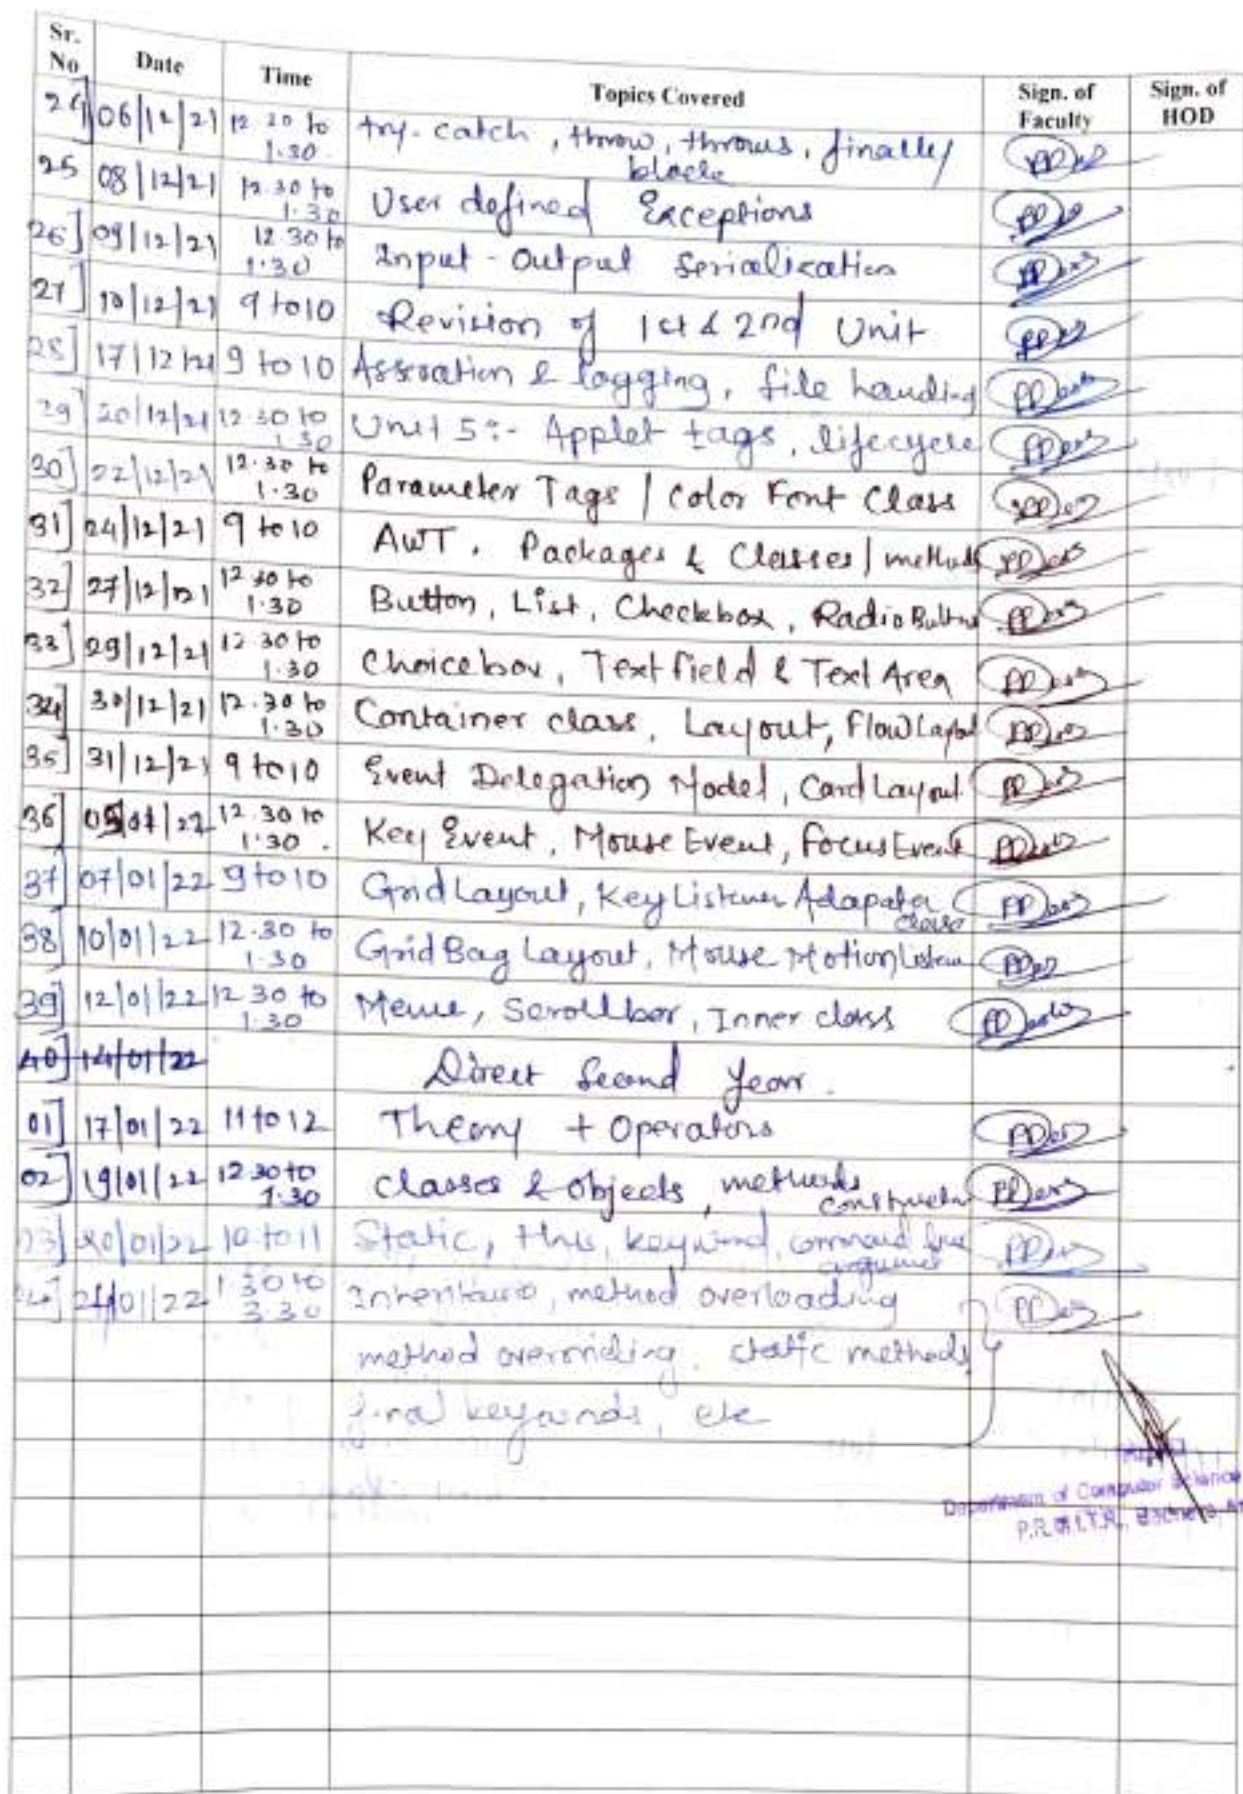 Sr. No Date Time Topics Covered Sign. of Faculty Sign. of HOD
24] 06/12/21 12.30 to 1.30 try-catch, throw, throws, finally block
25 08/12/21 12.30 to 1.30 User defined Exceptions
26] 09/12/21 12.30 to 1.30 Input-Output Serialization
27] 10/12/21 9 to 10 Revision of 1st & 2nd Unit
28] 17/12/21 9 to 10 Assration & logging, file handing
29] 20/12/21 12.30 to 1.30 Unit 5:- Applet tags, lifecycle
30] 22/12/21 12.30 to 1.30 Parameter Tags / Color Font Class
31] 24/12/21 9 to 10 AWT, Packages & Classes / methods
32] 27/12/21 12.30 to 1.30 Button, List, Checkbox, Radio Button
33] 29/12/21 12.30 to 1.30 Choicebox, Textfield & Text Area
34] 30/12/21 12.30 to 1.30 Container class, Layout, Flow Layout
35] 31/12/21 9 to 10 Event Delegation Model, Card Layout
36] 05/01/22 12.30 to 1.30. Key Event, Mouse Event, Focus Event
37] 07/01/22 9 to 10 Grid Layout, Key Listener Adapater class
38] 10/01/22 12.30 to 1.30 Grid Bag Layout, Mouse Motion Listener
39] 12/01/22 12.30 to 1.30 Menu, Scrollbar, Inner class
40] 14/01/22 Direct Second Year.
01] 17/01/22 11 to 12 Theory + Operators
02] 19/01/22 12.30 to 1.30 Classes & objects, methods constructor
03] 20/01/22 10 to 11 Static, this, keyword, command line argument
04] 21/01/22 1.30 to 3.30 Inheritance, method overloading
method overriding, static methods,
final keywords, etc
Department of Computer Science